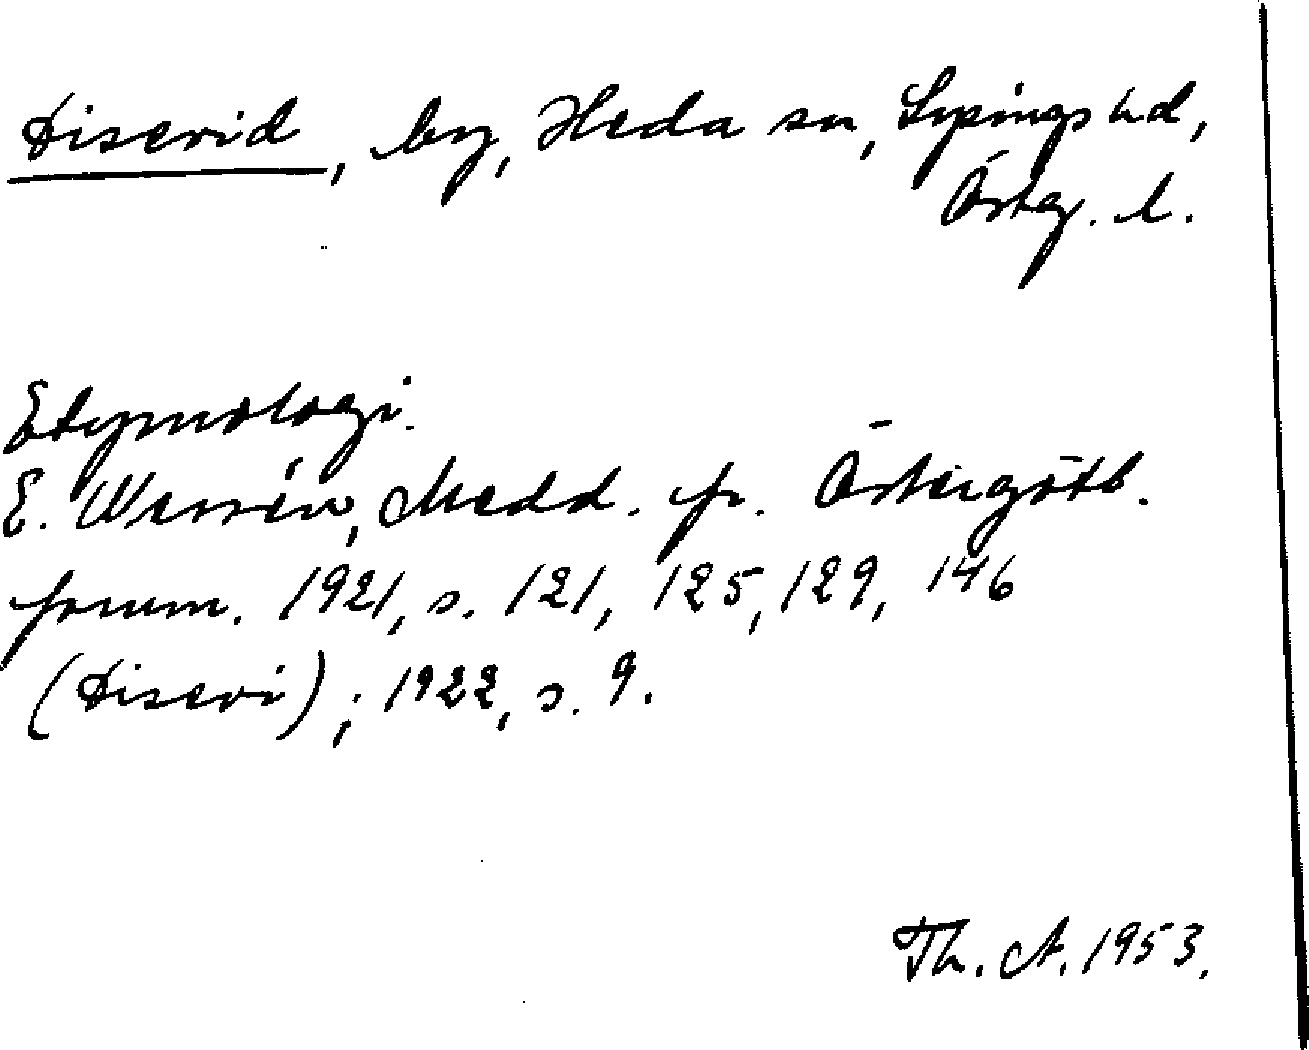 Disevid, by, Heda sn, Lysings hd,
Östg. l.
Etymologi.
E. Wessén, Medd. fr. Östergötl.
fornm. 1921, s. 121, 125, 129, 146
(Disevi); 1922, s. 9.
Th. A. 1953.